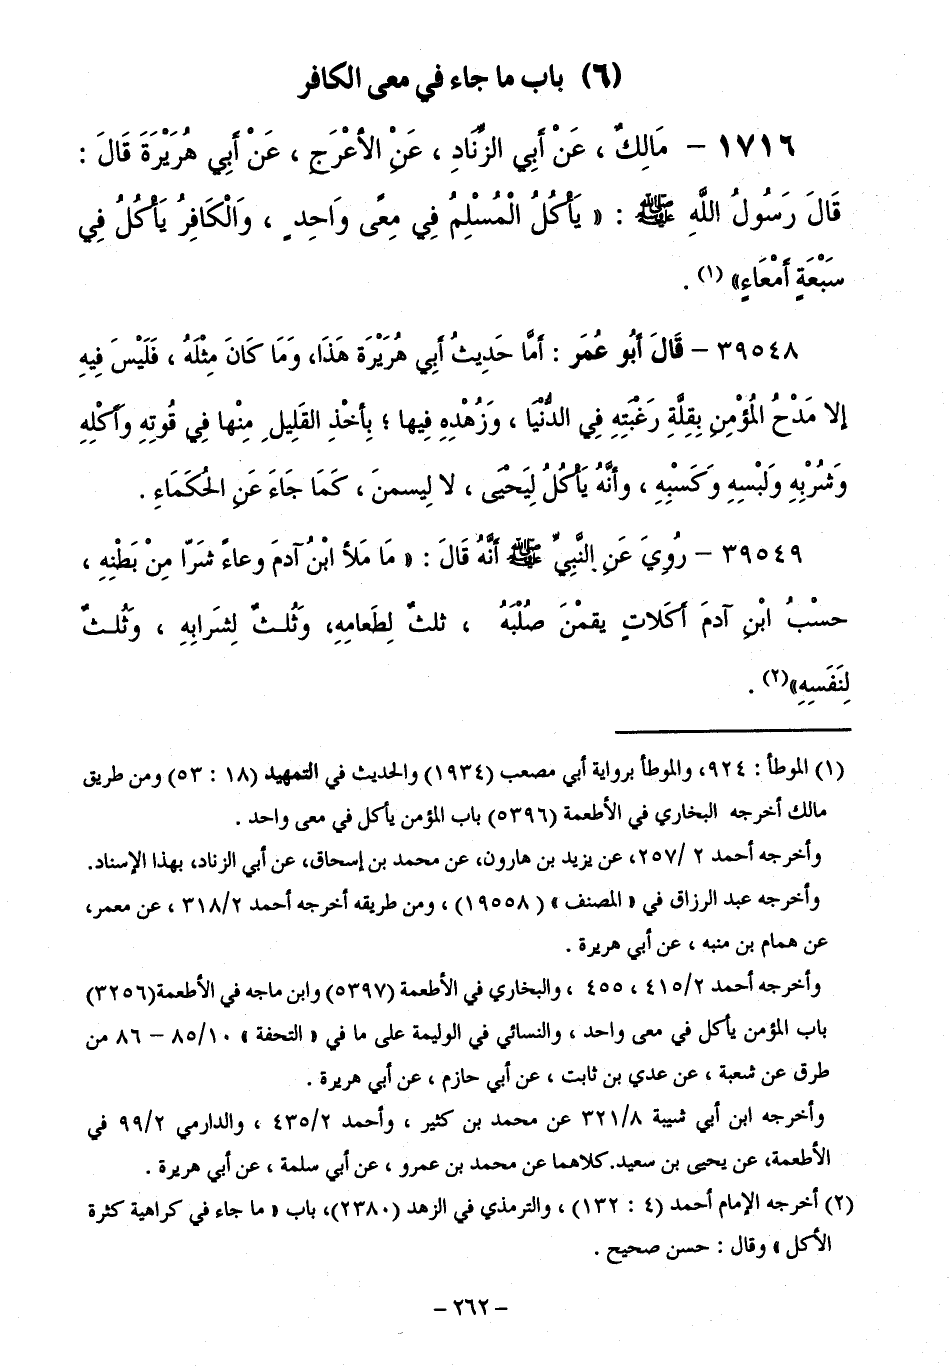 (٦) باب ما جاء في معى الكافر
١٧١٦ – مَالِكٌ ، عَنْ أَبِي الزِّنَادِ ، عَنِ الأَعْرَجِ ، عَنْ أَبِي هُرَيْرَةَ قَالَ :
قَالَ رَسُولُ اللَّهِ ﷺ : « يَأْكُلُ الْمُسْلِمُ فِي مِعًى وَاحِدٍ ، وَالْكَافِرُ يَأْكُلُ فِي
سَبْعَةِ أَمْعَاءٍ» (١) .
٣٩٥٤٨ – قَالَ أَبُو عُمَر : أَمَّا حَدِيثُ أَبِي هُرَيْرَةَ هَذَا، وَمَا كَانَ مِثْلَهُ ، فَلَيْسَ فِيهِ
إلا مَدْحُ المُؤْمِنِ بِقِلَّةِ رَغْبَتِهِ فِي الدُّنْيَا ، وَزُهْدِهِ فِيها ؛ بِأَخْذِ القَلِيلِ مِنْها فِي قُوتِهِ وَأَكْلِهِ
وَشُرْبِهِ وَلَبْسِهِ وَكَسْبِهِ ، وأَنَّهُ يَأْكُلُ لِيَحْيَى ، لا لِيسمنَ ، كَمَا جَاءَ عَنِ الحُكَمَاءِ .
٣٩٥٤٩ – رُوِيَ عَنِ النَّبِيِّ ﷺ أَنَّهُ قَالَ : « مَا مَلأ ابْنُ آدمَ وعاءً شَرًا مِنْ بَطْنِهِ ،
حسْبُ ابْنِ آدمَ أَكَلاتٍ يقمْنَ صُلْبَهُ ، ثلثٌ لِطَعامِهِ، وَثُلثٌ لِشَرَابِهِ ، وَثُلثٌ
لِنَفَسِهِ»(٢) .
(١) الموطأ : ٩٢٤، والموطأ برواية أبي مصعب (١٩٣٤) والحديث في التمهيد (١٨ : ٥٣) ومن طريق
مالك أخرجه البخاري في الأطعمة (٥٣٩٦) باب المؤمن يأكل في معى واحد .
وأخرجه أحمد ٢ /٢٥٧، عن يزيد بن هارون، عن محمد بن إسحاق، عن أبي الزناد، بهذا الإسناد.
وأخرجه عبد الرزاق في « المصنف » (١٩٥٥٨) ، ومن طريقه أخرجه أحمد ٣١٨/٢ ، عن معمر،
عن همام بن منبه ، عن أبي هريرة .
وأخرجه أحمد ٤١٥/٢ ، ٤٥٥ ، والبخاري في الأطعمة (٥٣٩٧) وابن ماجه في الأطعمة(٣٢٥٦)
باب المؤمن يأكل في معى واحد ، والنسائي في الوليمة على ما في « التحفة » ٨٥/١٠ – ٨٦ من
طرق عن شعبة ، عن عدي بن ثابت ، عن أبي حازم ، عن أبي هريرة .
وأخرجه ابن أبي شيبة ٣٢١/٨ عن محمد بن كثير ، وأحمد ٤٣٥/٢ ، والدارمي ٩٩/٢ في
الأطعمة، عن يحيى بن سعيد.كلاهما عن محمد بن عمرو ، عن أبي سلمة ، عن أبي هريرة .
(٢) أخرجه الإمام أحمد (٤ : ١٣٢) ، والترمذي في الزهد (٢٣٨٠)، باب « ما جاء في كراهية كثرة
الأكل » وقال : حسن صحيح .
– ٢٦٢ –